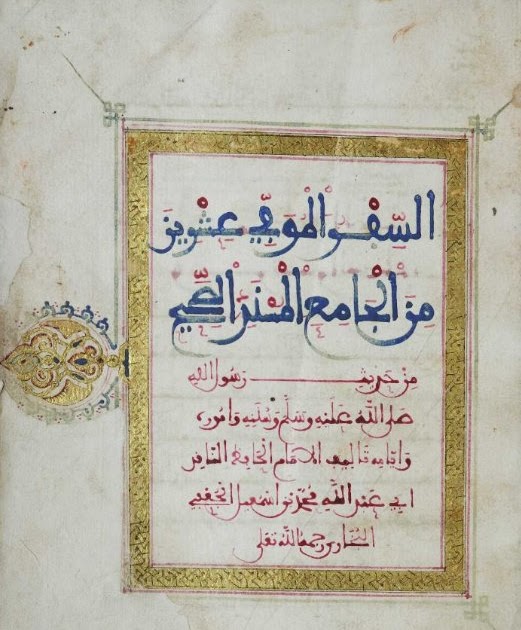 السِّفر الموفي عشرين
من الجامع المسند الصحيح
من حديث رسول الله
صلى الله عليه وسلم واموره
وايامه تاليف الامام الحافظ الناقد
ابي عبد الله محمد بن اسمعيل الجعفي
البخاري رحمه الله تعلى